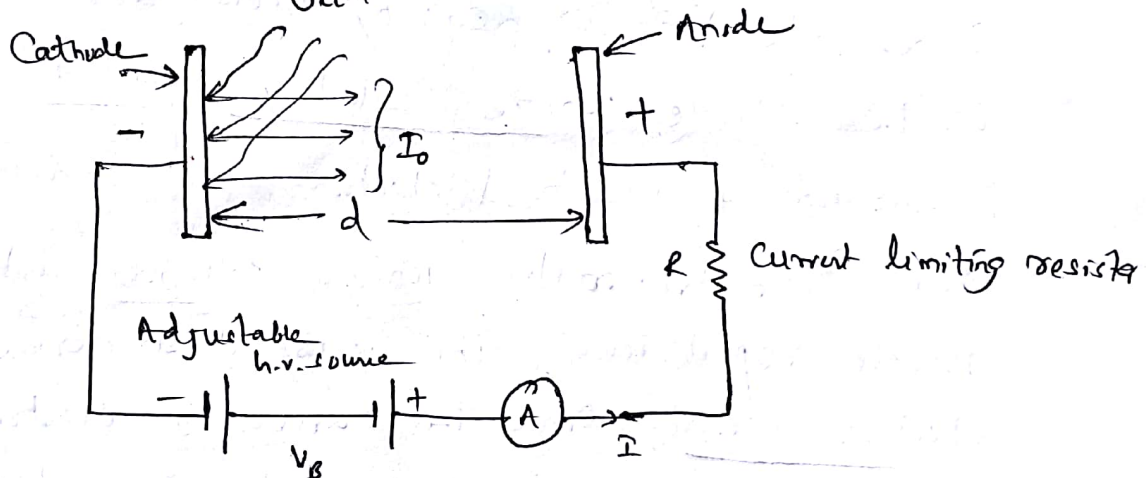 Cathode
Anode
-
I₀
+
d
R
Current limiting resister
Adjustable
h.v. source
-
+
A
I
V_B